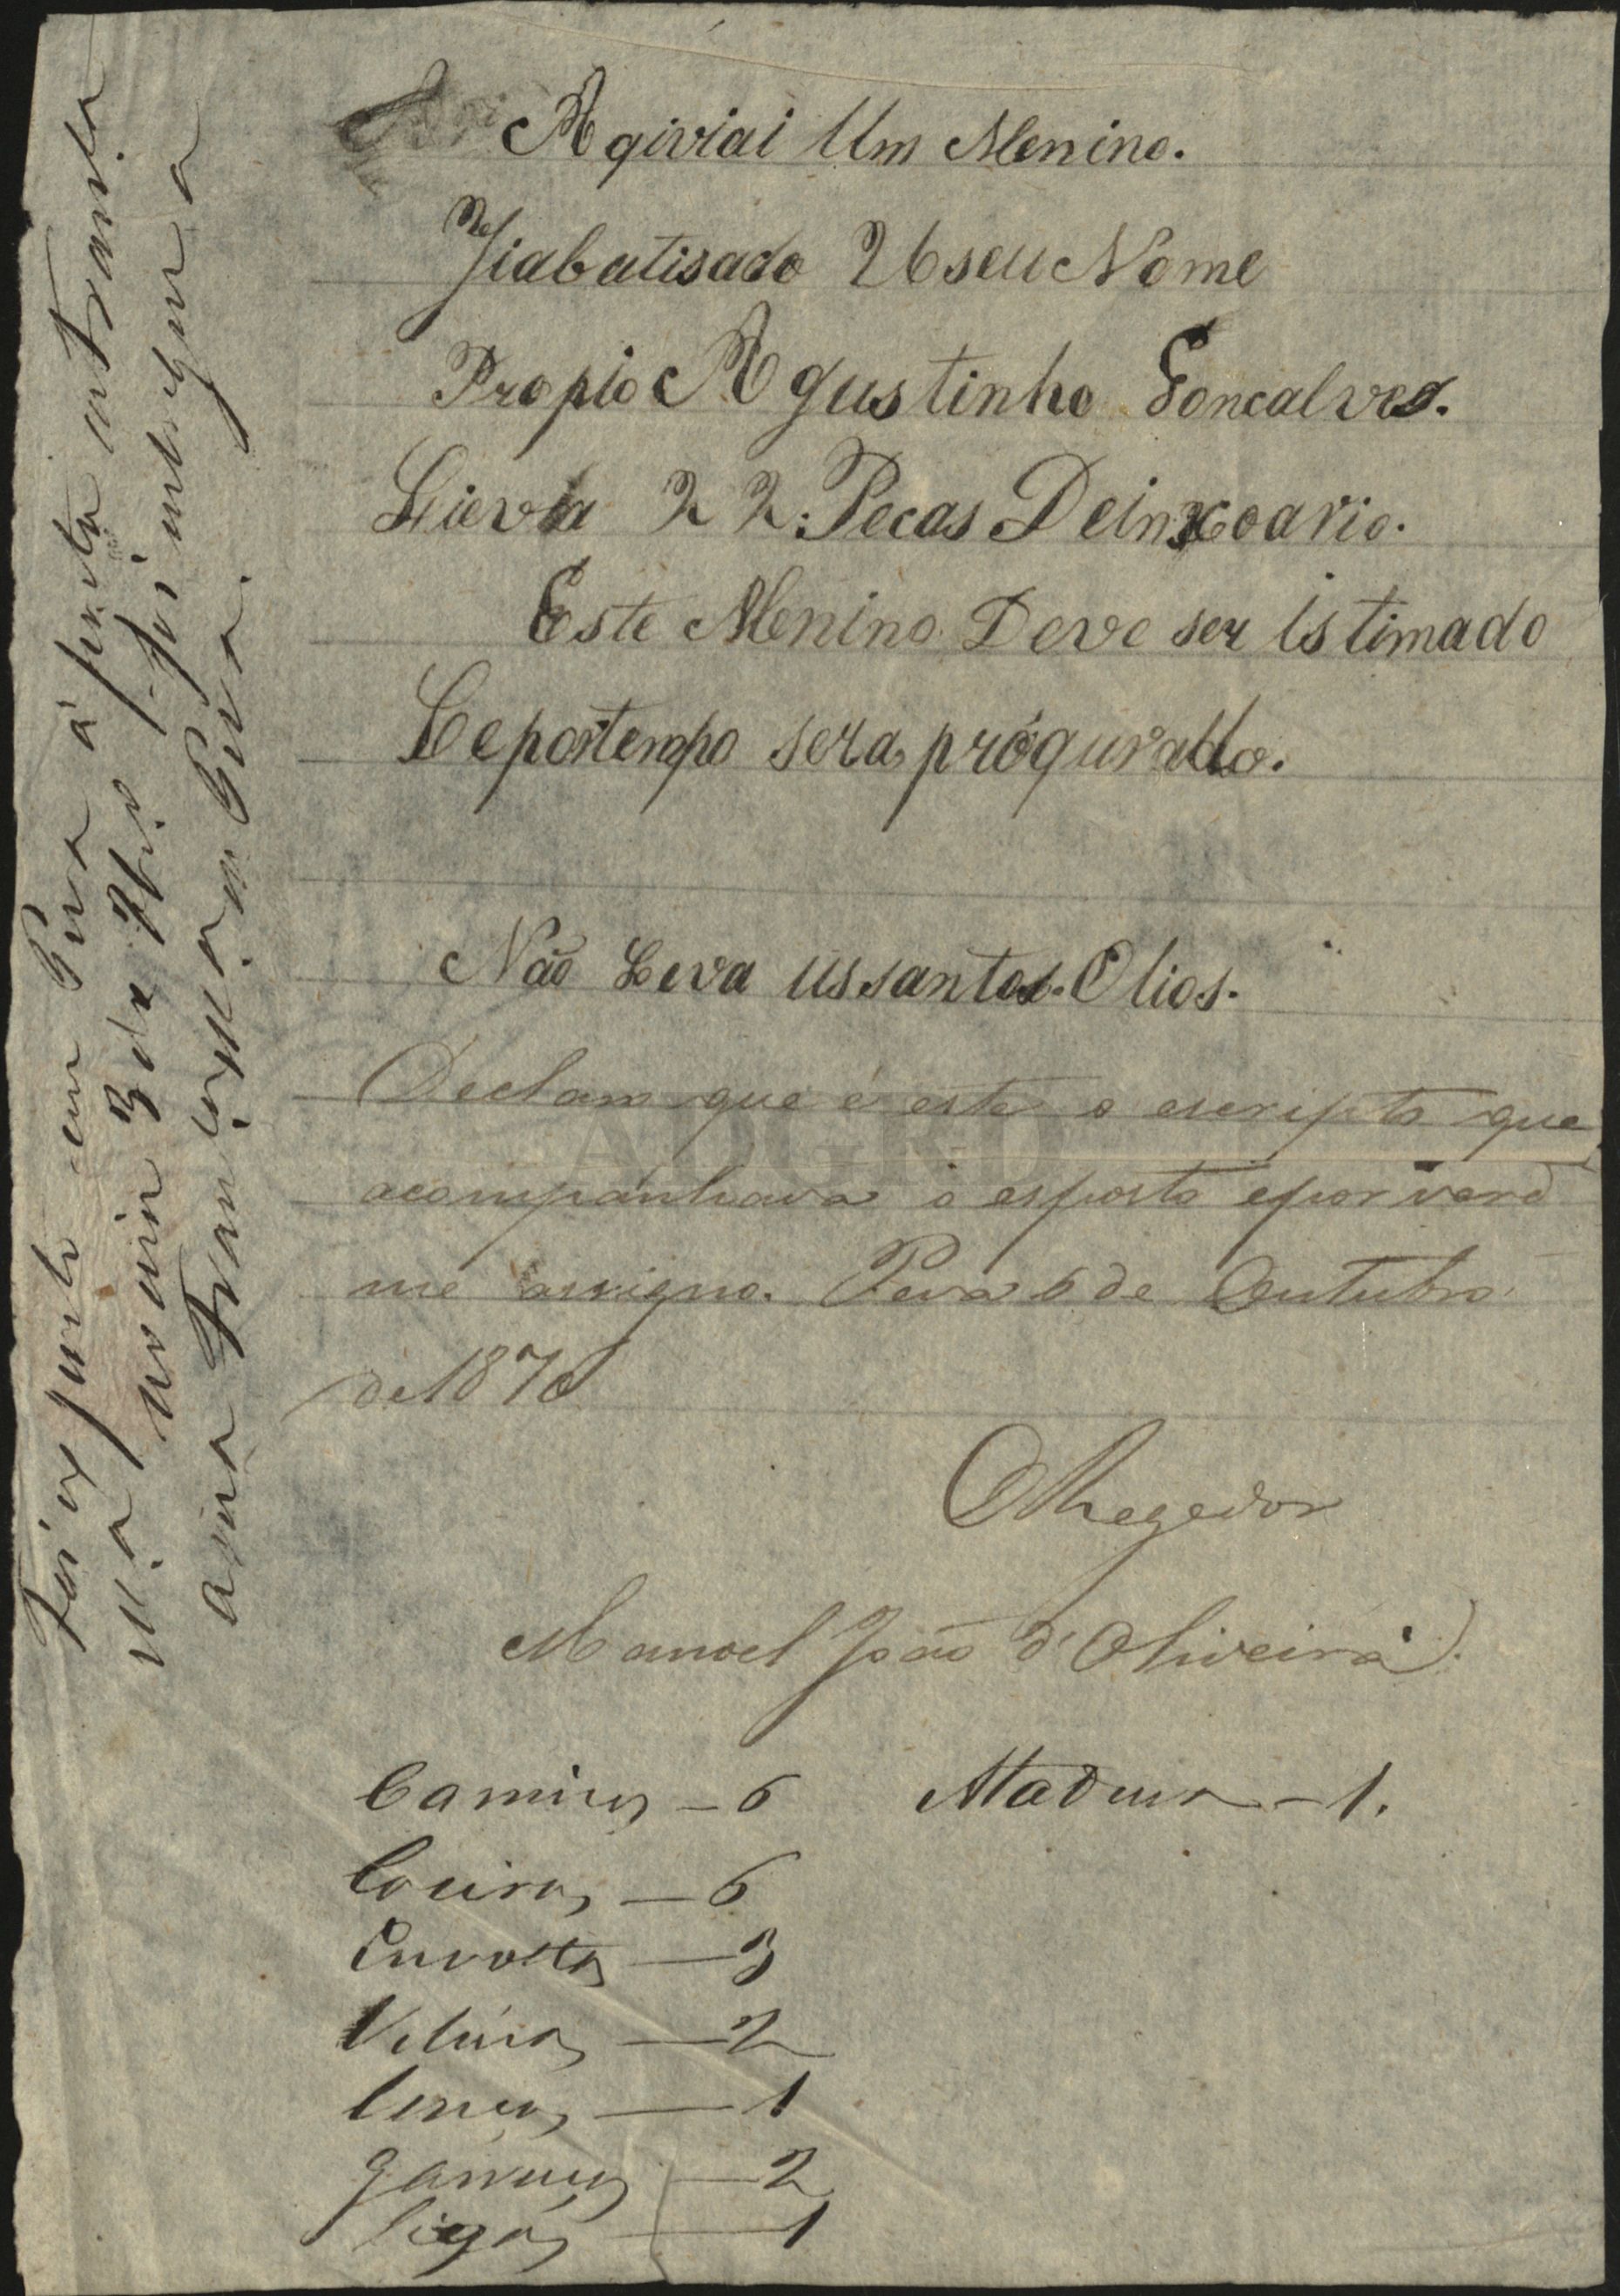 Agiviai Um Menino.
Jiabatisado 26 seu Nome
Propio Agustinho Goncalves.
Lieva 22. Pecas Deinxoario.
Este Menino Deve ser istimado
Le portempo sera próqurado.
Não Leva us santos. Olios.
Declaro que é este o escripto que
acompanhava o esposto e por verd
me assigno. Peva 6 de Outubro
de 187
O Regedor
Manoel João d'Oliveira
Camisas - 6 Atadura - 1.
Coeiros - 6
Envolta - 3
- 2
Lenços - 1
- 2
Ligas - 1
Foi exposto em Peva à porta
na noite 3 de foi entregue a
ama Francisca Peva.